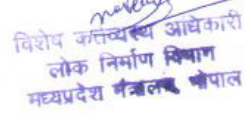 विशेष कर्त्तव्यस्थ अधिकारी
लोक निर्माण विभाग
मध्यप्रदेश मंत्रालय, भोपाल